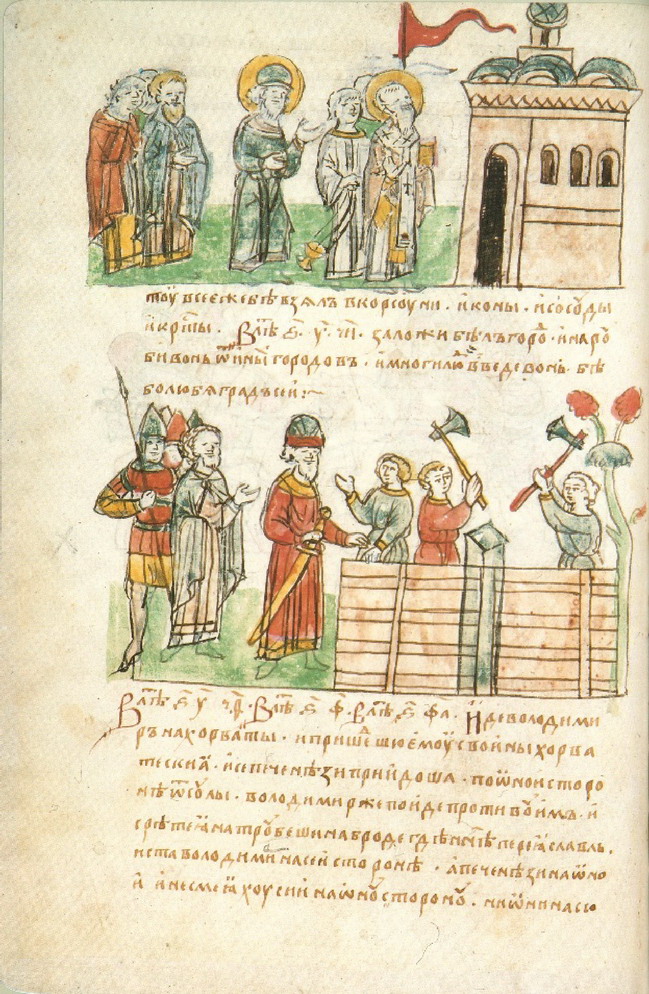 тоу всеежевѣвзялъ вкорсоуни . иконы . исосоуды
икрⷭ҇ты . Влⷮѣ ҂ѕ . у҃ . ч҃ . заложи бѣлъгороⷣ . инарꙋ
бивонь ѿ ины городовъ . имноги люⷣ въведевонь . бѣ
болюбя градъсеи :~
Влⷮѣ ҂ѕ у҃ ч҃ф . Влⷮѣ ҂ѕ ф҃ . Влⷮѣ ҂ѕ ф҃а . Иде володими
ръ нахорваты . ипришеⷣшюемоу свойны хорва
тескиа . исе печенѣзи прийдоша . пооноисторо
нѣ ѿ соулы . володимиръ же поиде противоуимъ . и
срѣтеꙗ натрꙋбеши наброде гдѣ ннѣ переꙗславль .
иста володими насеисторонѣ . а печенѣзи наѡно
и . и несмеꙗхоу сии наѡнꙋ сторонꙋ . ни ѡни насю